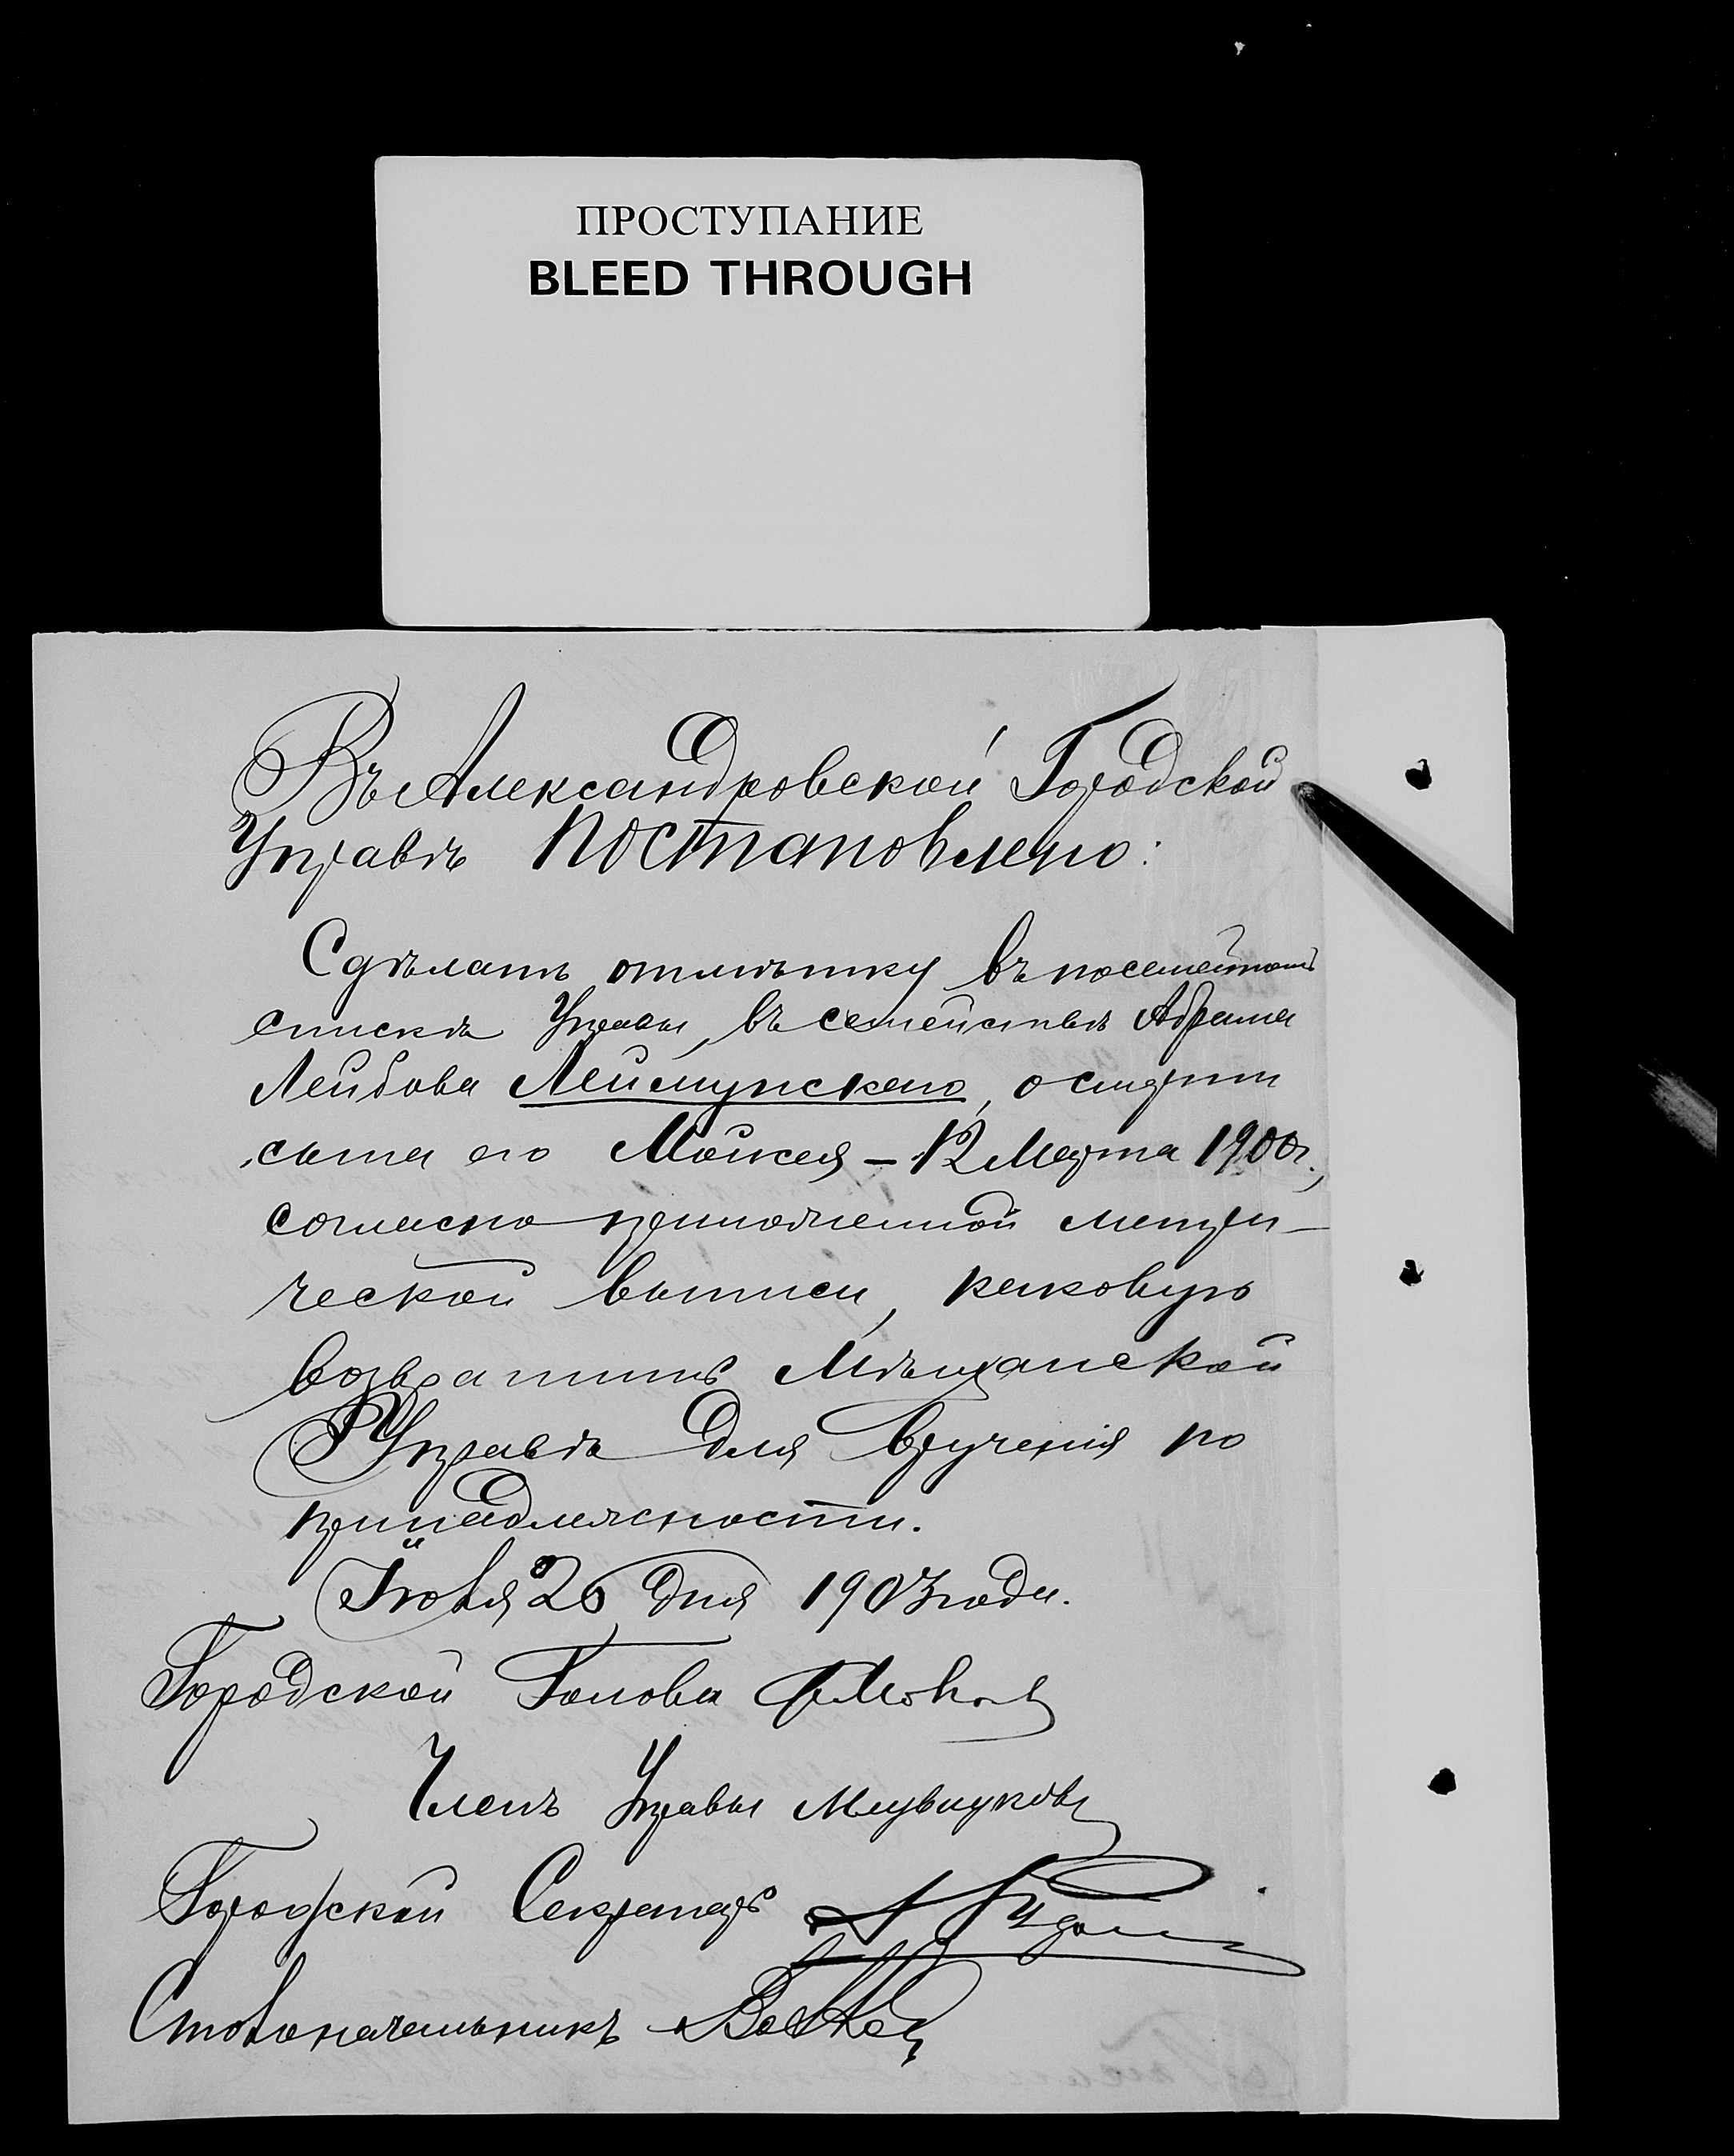 ПРОСТУПАНИЕ
BLEED THROUGH
Въ Александровской Городской
Управѣ постановлено:
Сдѣлать отмѣтку въ посемейномъ
спискѣ Управы, въ семействѣ Абрама
Лейбова, о смерти
сына его Мойсея – 12 Марта 1900г.,
согласно приложенной метри–
ческой выписи, каковую
возвратить Мѣщанской
Управѣ для врученія по
принадлежности.
Іюня 26 дня 1903 года.
Городской Голова
Членъ Управы
Городской Секретарь
Столоначальникъ